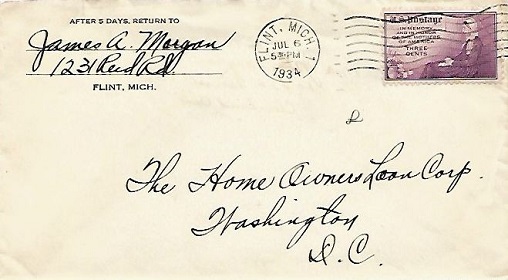 AFTER 5 DAYS, RETURN TO
James A. Morgan
1231 Reid Rd.
FLINT, MICH.
FLINT, MICH. 1
JUL 6
5 PM
1934
U.S. Postage
IN MEMORY
AND IN HONOR
OF THE MOTHERS
OF AMERICA
THREE
CENTS
The Home Owners Loan Corp.
Washington
D.C.